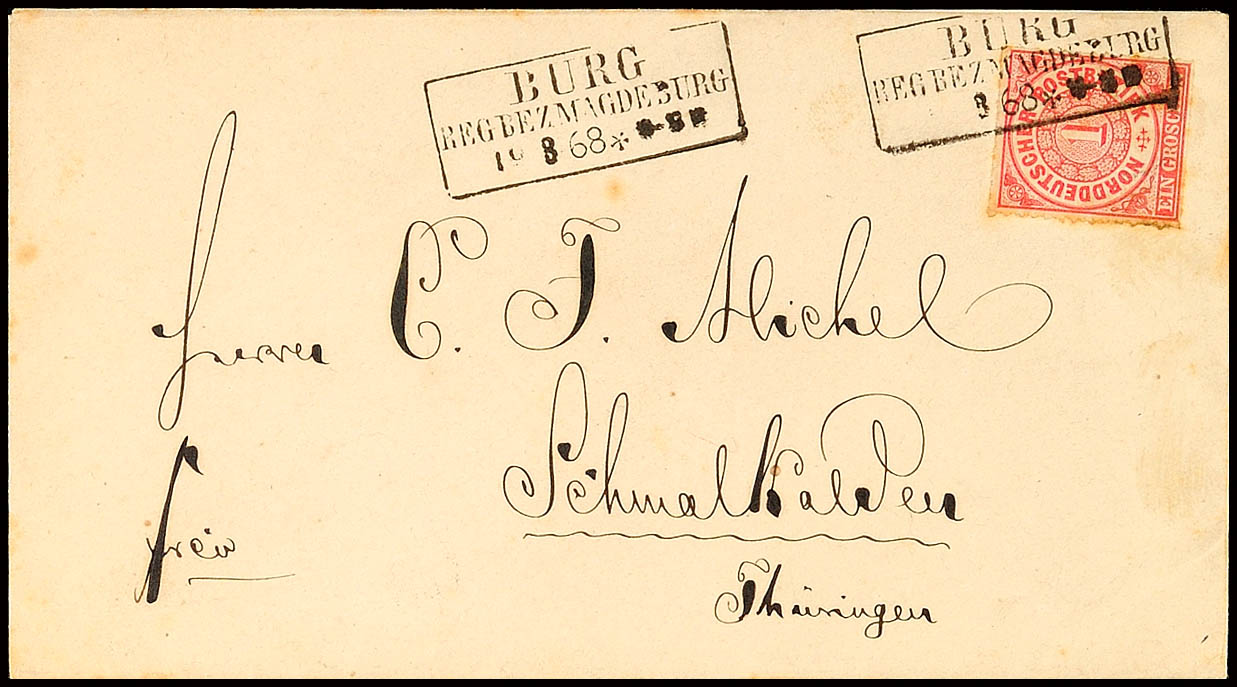 BURG
REGBEZMAGDEBURG
19 8 68 *
BURG
REGBEZMAGDEBURG
8 68 *
NORDDEUTSCHER POSTBEZIRK
1
EIN GROSCH
Herrn C. F. Michel
Schmalkalden
frei
Thüringen